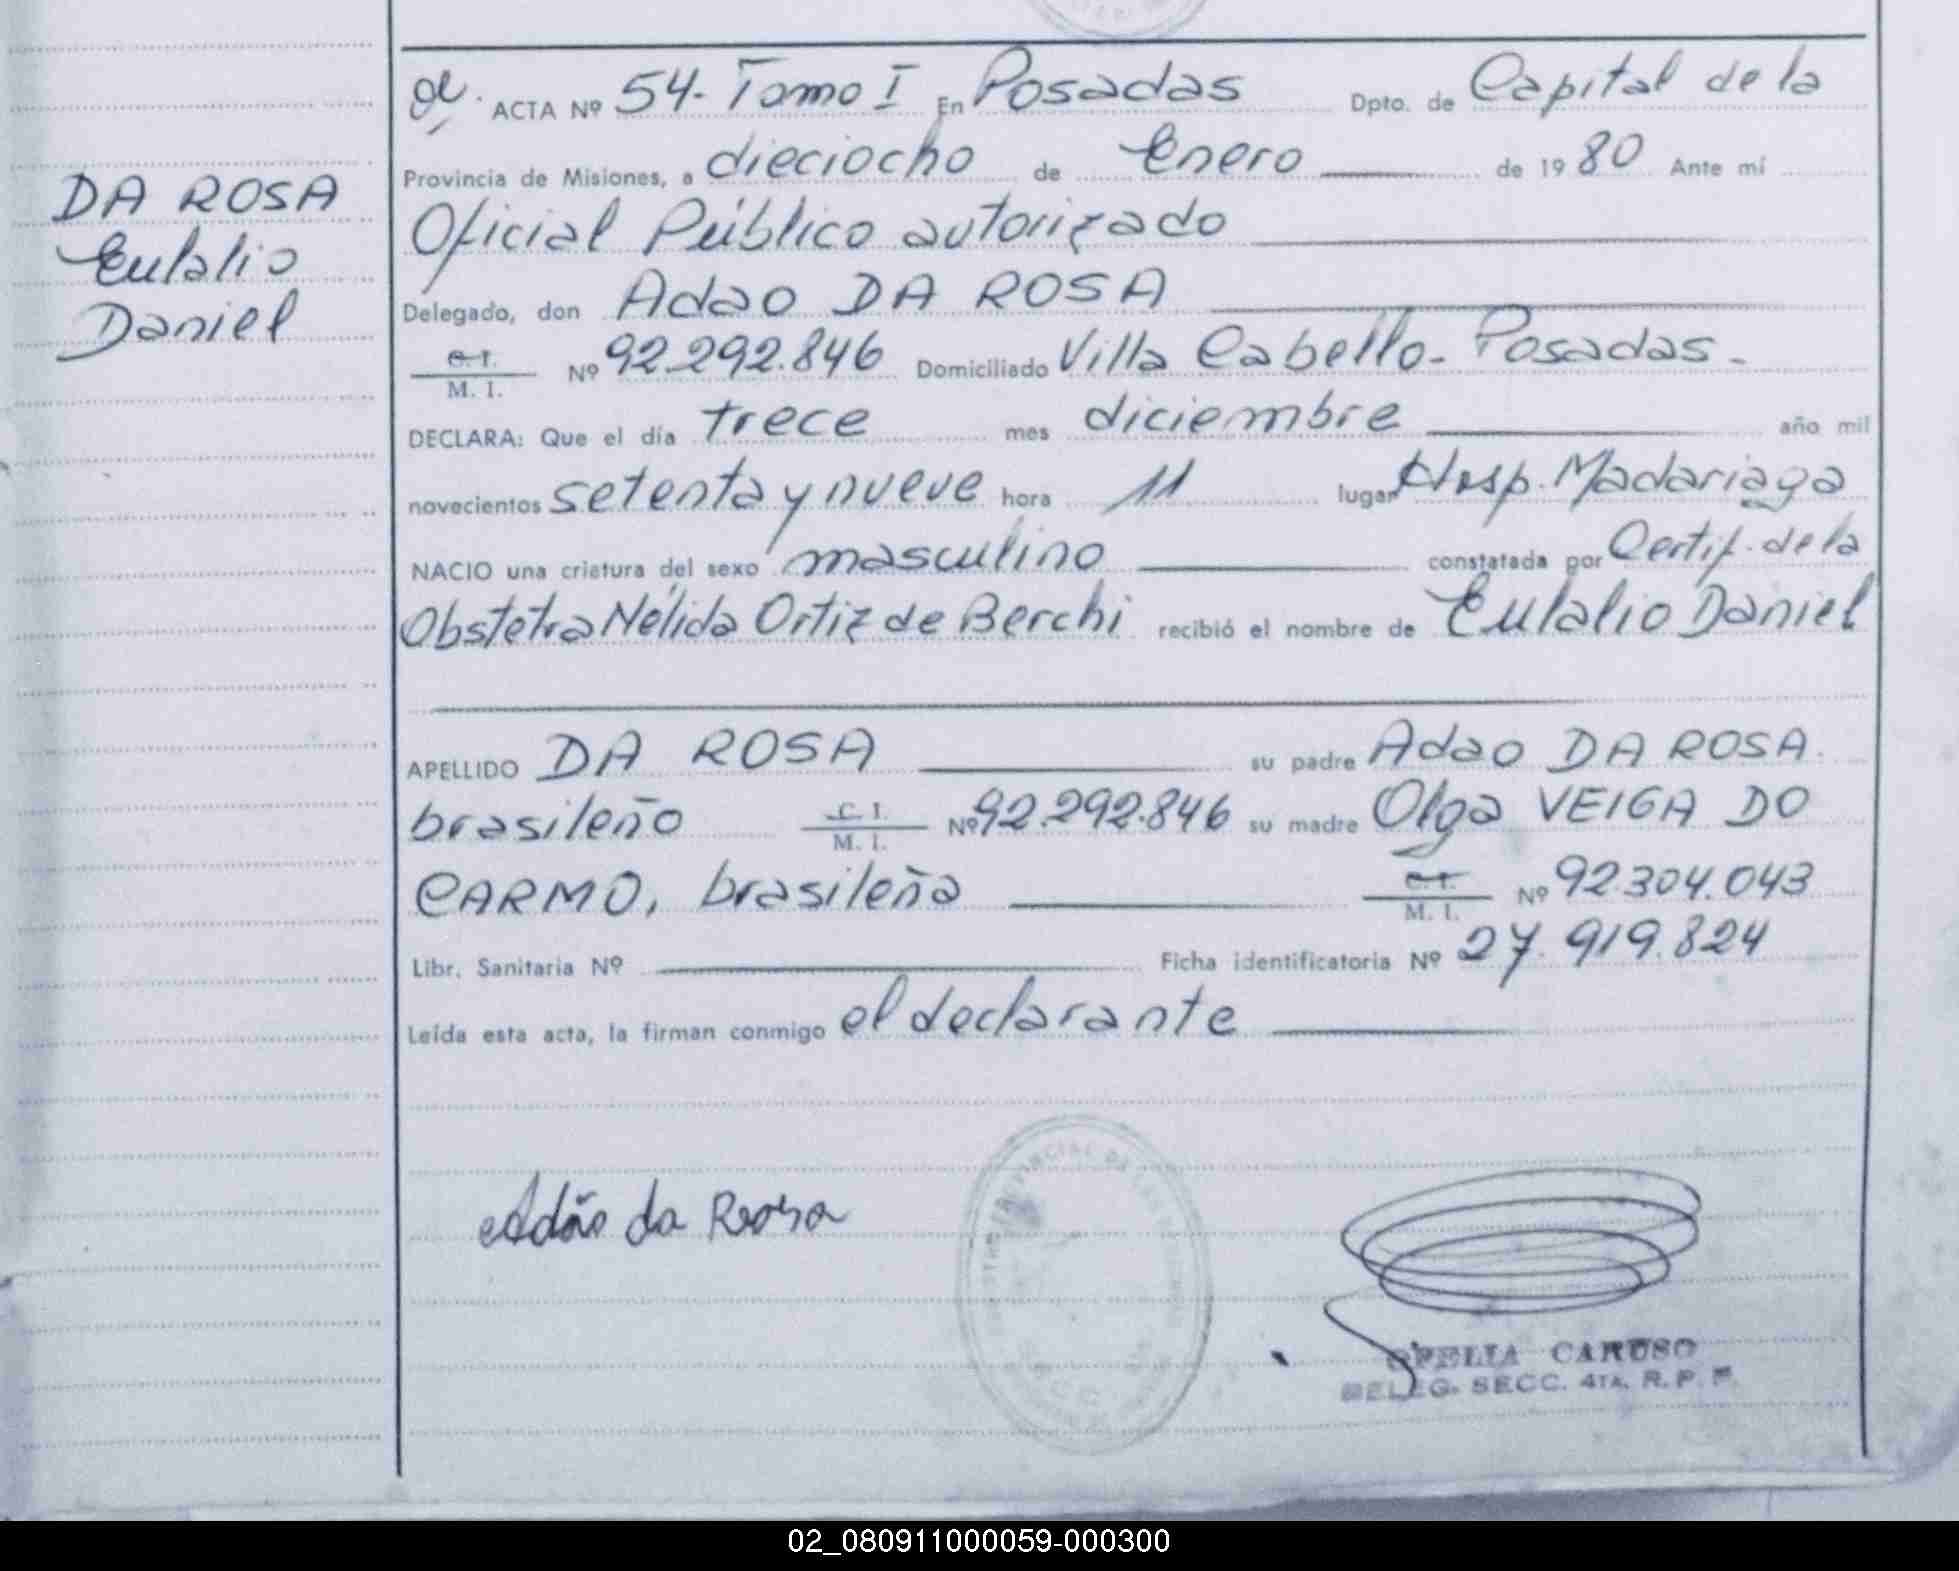 DA ROSA
Eulalio
Daniel
ACTA Nº 54- Tomo I En Posadas Dpto. de Capital de la
Provincia de Misiones, a dieciocho de Enero de 1980 Ante mí
Oficial Público autorizado
Delegado, don Adao DA ROSA
C. I.
M. I. Nº 92.292.846 Domiciliado Villa Cabello- Posadas-
DECLARA: Que el día trece mes diciembre año mil
novecientos setenta y nueve hora 11 lugar Hosp. Madariaga
NACIO una criatura del sexo masculino constatada por Certif. de la
Obstetra Nélida Ortiz de Berchi recibió el nombre de Eulalio Daniel
APELLIDO DA ROSA su padre Adao DA ROSA.
brasileño C. I. Nº 92.292.846 su madre Olga VEIGA DO
M. I.
CARMO, brasileña C. I. Nº 92.304.043
M. I.
Libr. Sanitaria Nº Ficha identificatoria Nº 27.919.824
Leída esta acta, la firman conmigo el declarante
Adão da Rosa
OFELIA CARUSO
DELEG. SECC. 4TA. R. P. P.
02_080911000059-000300